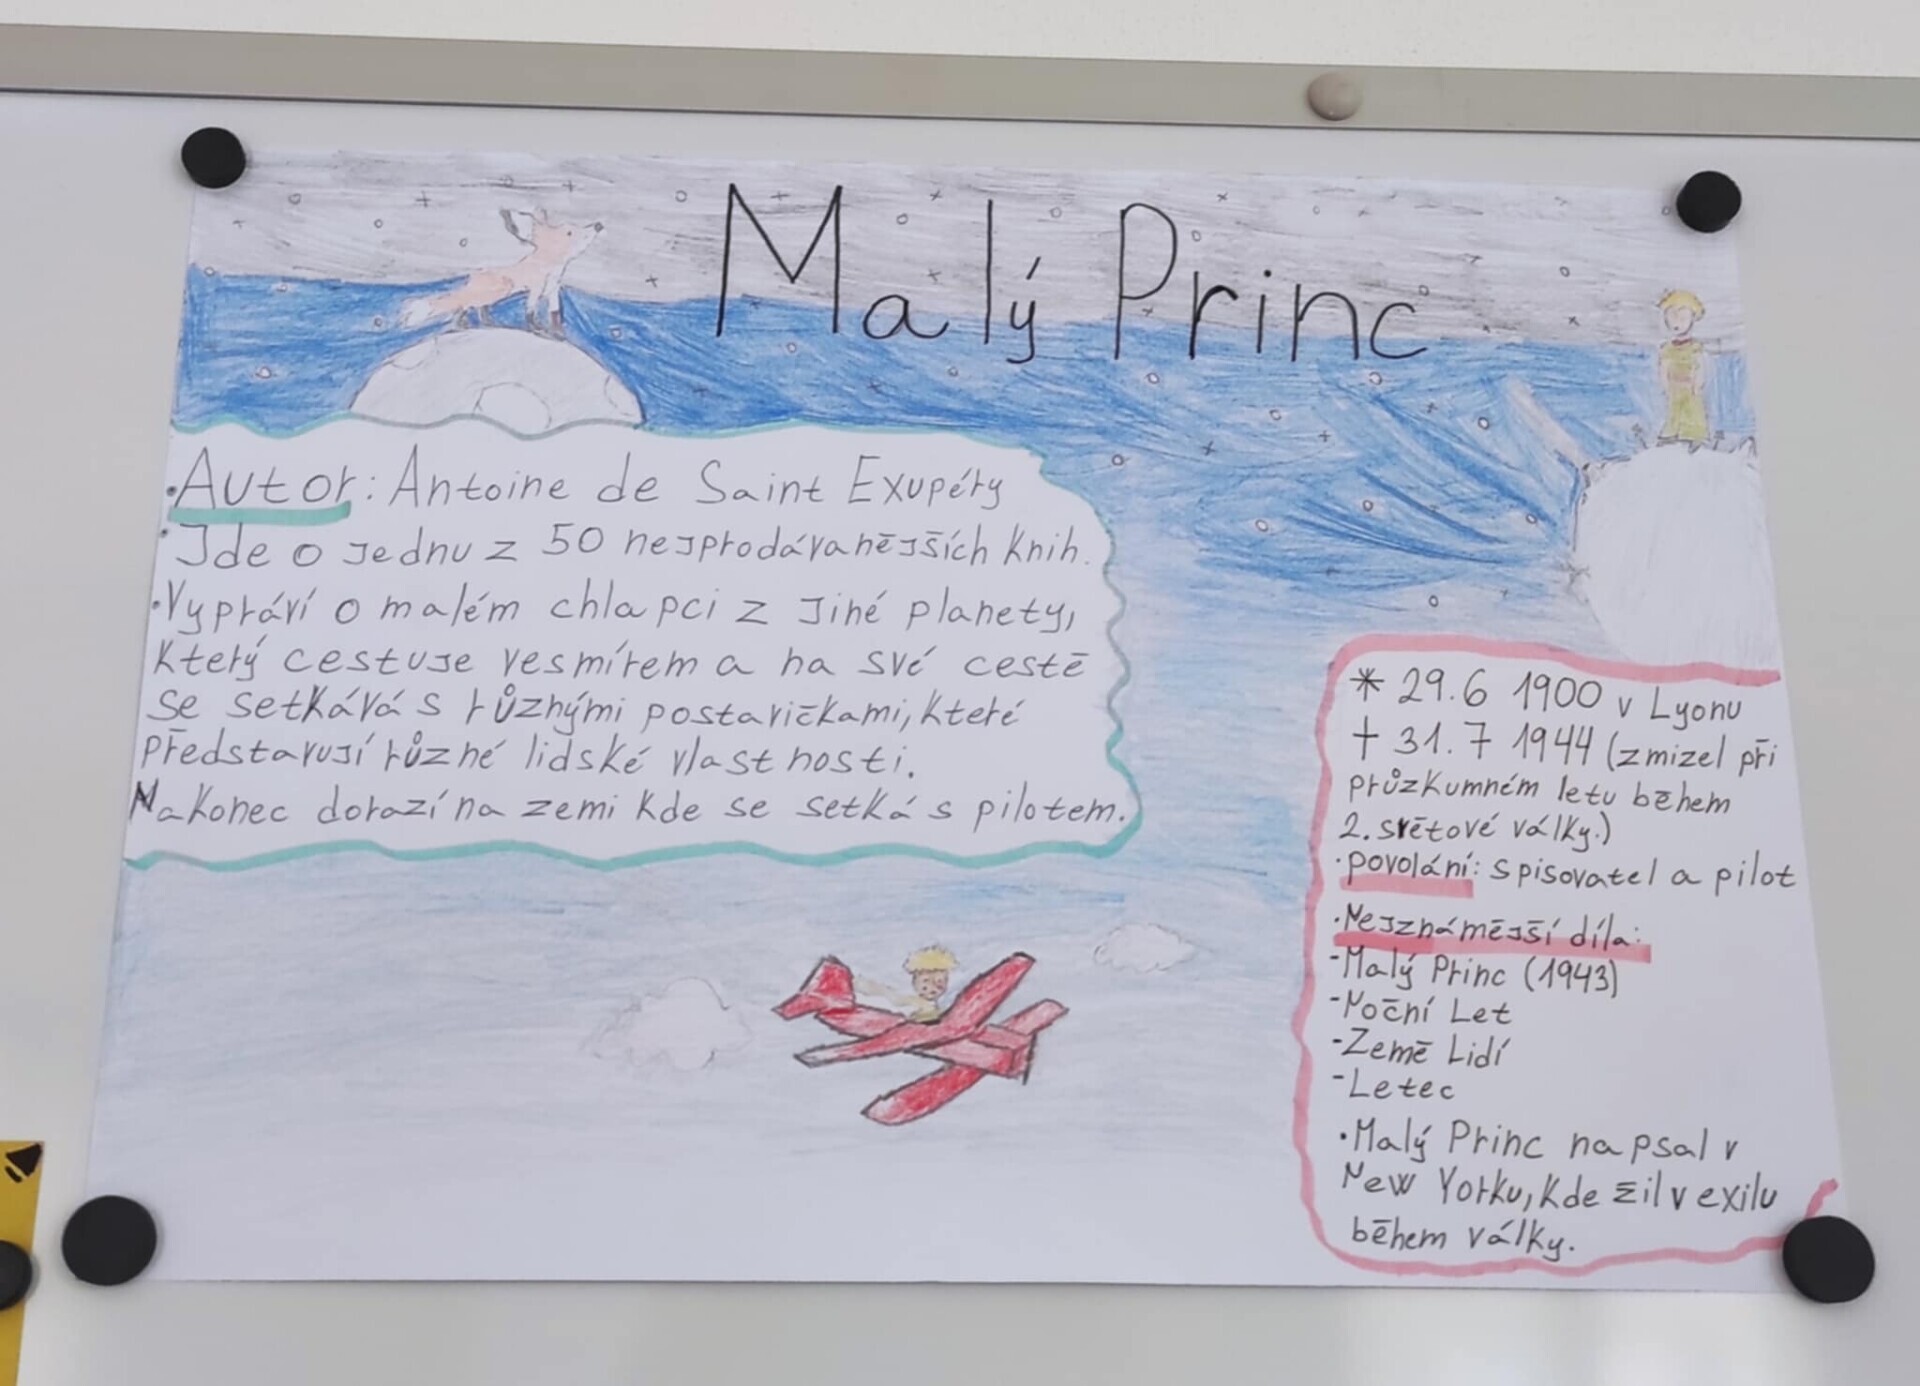 Malý Princ
•Autor: Antoine de Saint Exupéry
•Jde o jednu z 50 nejprodávanějších knih.
•Vypráví o malém chlapci z jiné planety,
který cestuje vesmírem a na své cestě
se setkává s různými postavičkami, které
představují různé lidské vlastnosti.
Nakonec dorazí na zemi kde se setká s pilotem.
* 29.6 1900 v Lyonu
† 31.7 1944 (zmizel při
průzkumném letu během
2. světové války.)
•povolání: spisovatel a pilot
•Nejznámější díla:
-Malý Princ (1943)
-Noční Let
-Země Lidí
-Letec
•Malý Princ napsal v
New Yorku, kde žil v exilu
během války.